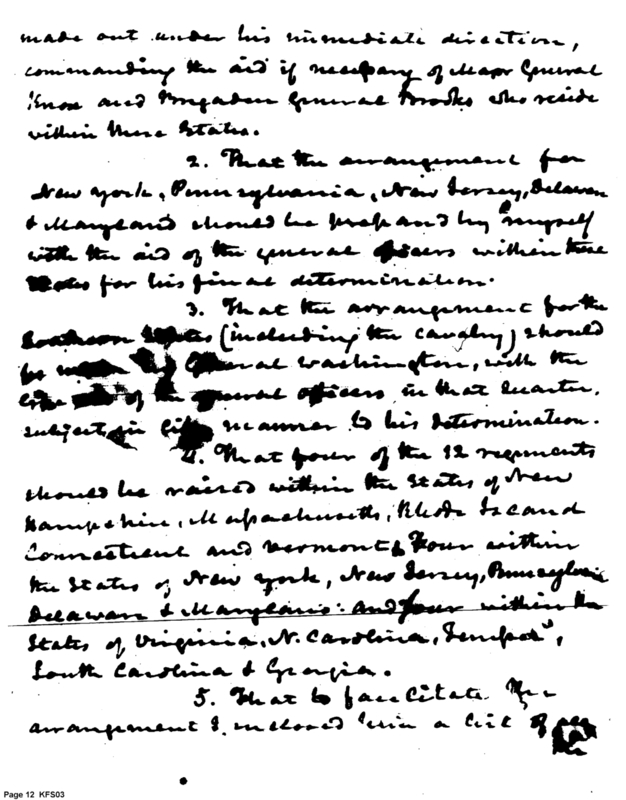 made out under his immediate direction,
commanding the aid if necessary of Major General
Knox and Brigadier General Brooks who reside
within these States.
2. That the arrangement for
New York, Pennsylvania, New Jersey, Delaware
& Maryland should be prepared by myself
with the aid of the general officers within these
States for his final determination.
3. That the arrangement for the
Southern States (including the cavalry) should
be made by General Washington, with the
like of the general officers in that Quarter,
subject in like manner to his determination.
4. That four of the 12 regiments
should be raised within the States of New
Hampshire, Massachusetts, Rhode Island
Connecticut and Vermont & Four within
the States of New York, New Jersey, Pennsylvania
Delaware & Maryland: and four within the
States of Virginia, N. Carolina,
South Carolina & Georgia.
5. That to facilitate the
arrangement I inclosed him a list of
Page 12 KFS03